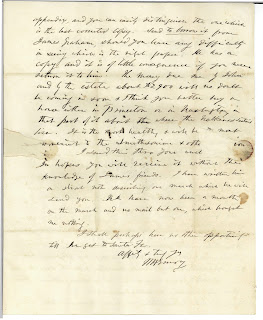 appendix and you can easily distinguish the one which
is the last corrected copy. Send to borrow it from
James Graham should you have any difficulty
in seeing which is the right paper. He has a
copy and it is of little consequence if you never
return it to him. The money due me of John
and of the estate about the $900 will no doubt
be coming in soon & I think you better buy a
house & live in it or a lot in Washington in
that part of it about the
here. It is the most healthy & will be in most
convenient to the Smithsonian & other
I send this through one
In hopes you will receive it without the
knowledge of James friends. I have written him
a short note enclosing one much which he will
send you. We have now been a month
on the march and no mail but one, which brought
me nothing
I shall perhaps have no other opportunity
till we get to Santa Fe
Affly & truly yrs
WH Emory